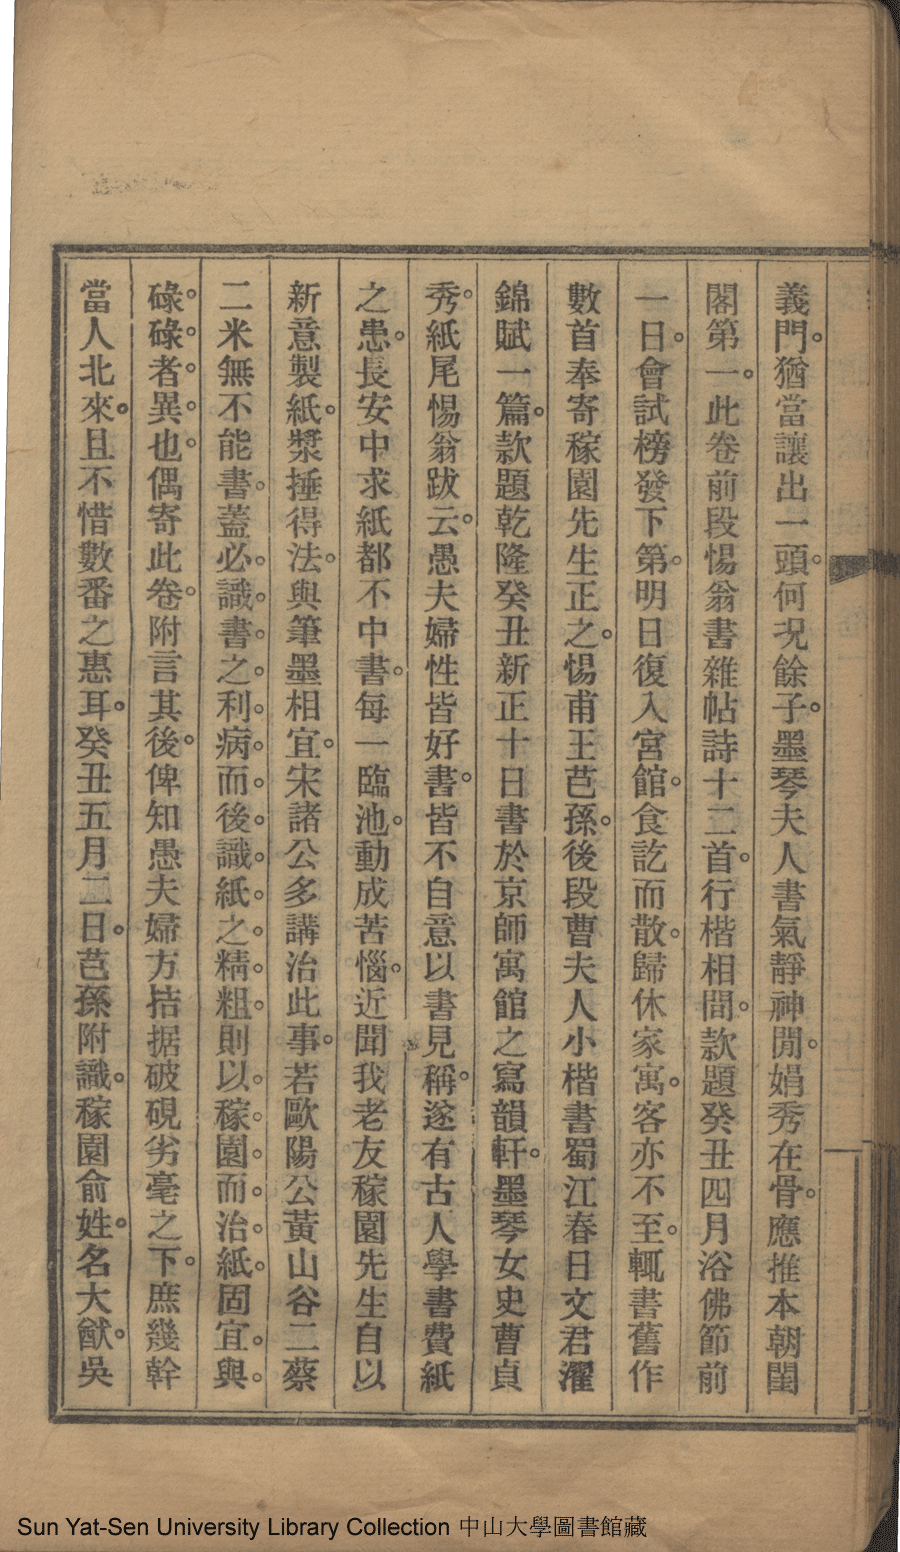 義門。猶當讓出一頭。何況餘子。墨琴夫人書氣靜神閒。娟秀在骨。應推本朝閨
閣第一。此卷前段惕翁書雜帖詩十二首。行楷相間。款題癸丑四月浴佛節前
一日。會試榜發下第。明日復入宮館。食訖而散。歸休家寓。客亦不至。輒書舊作
數首奉寄稼園先生正之。惕甫王芑孫。後段曹夫人小楷書蜀江春日文君濯
錦賦一篇。款題乾隆癸丑新正十日書於京師寓館之寫韻軒。墨琴女史曹貞
秀。紙尾惕翁跋云。愚夫婦性皆好書。皆不自意以書見稱。遂有古人學書費紙
之患。長安中求紙都不中書。每一臨池。動成苦惱。近聞我老友稼園先生自以
新意製紙。漿捶得法。與筆墨相宜。宋諸公多講治此事。若歐陽公黃山谷二蔡
二米無不能書。蓋必。識。書。之。利。病。而。後。識。紙。之。精。粗。則以。稼。園。而。治。紙。固宜。與。
碌。碌。者。異。也。偶寄此卷。附言其後。俾知愚夫婦方拮据破硯劣毫之下。庶幾幹
當人北來。且不惜數番之惠耳。癸丑五月二日。芑孫附識。稼園俞姓。名大猷。吳
Sun Yat-Sen University Library Collection 中山大學圖書館藏